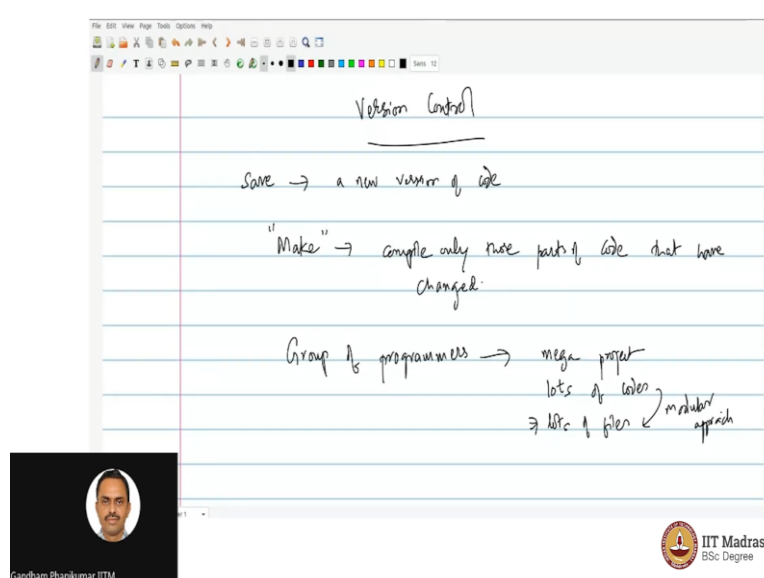 File Edit View Page Tools Options Help
T
Sans 12
Version Control
Save → a new version of code
"Make" → compile only those parts of code that have
changed.
Group of programmers → mega project
lots of codes
⇒ lots of files
modular
approach
Gandham Phanikumar IITM
IIT Madras
BSc Degree